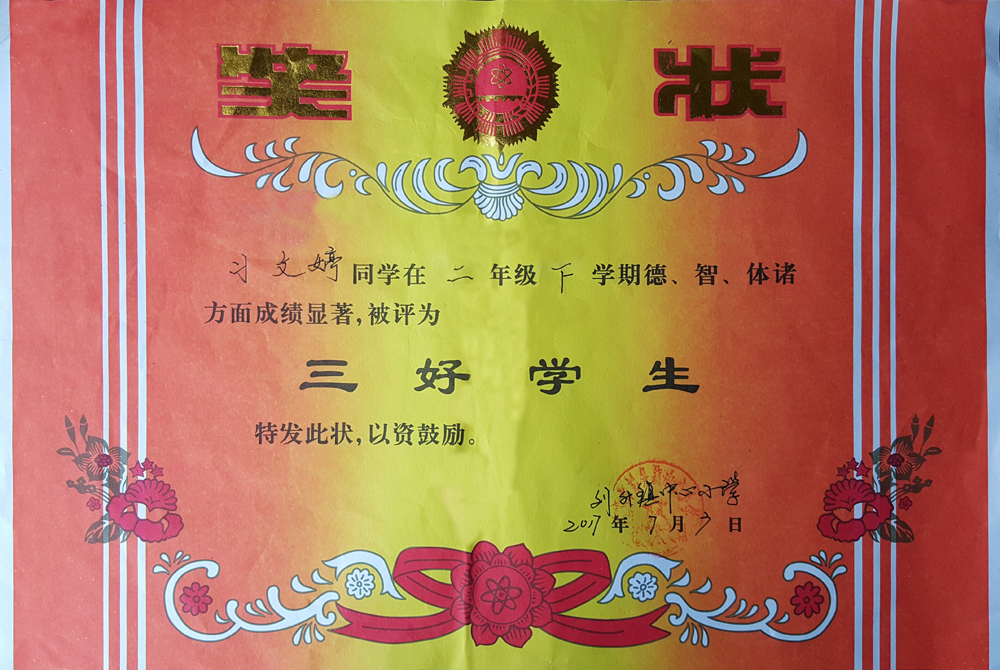 奖状
习文婷同学在 二 年级 下 学期德、智、体诸
方面成绩显著,被评为
三好学生
特发此状,以资鼓励。
镇中心小学
2017年7月 日